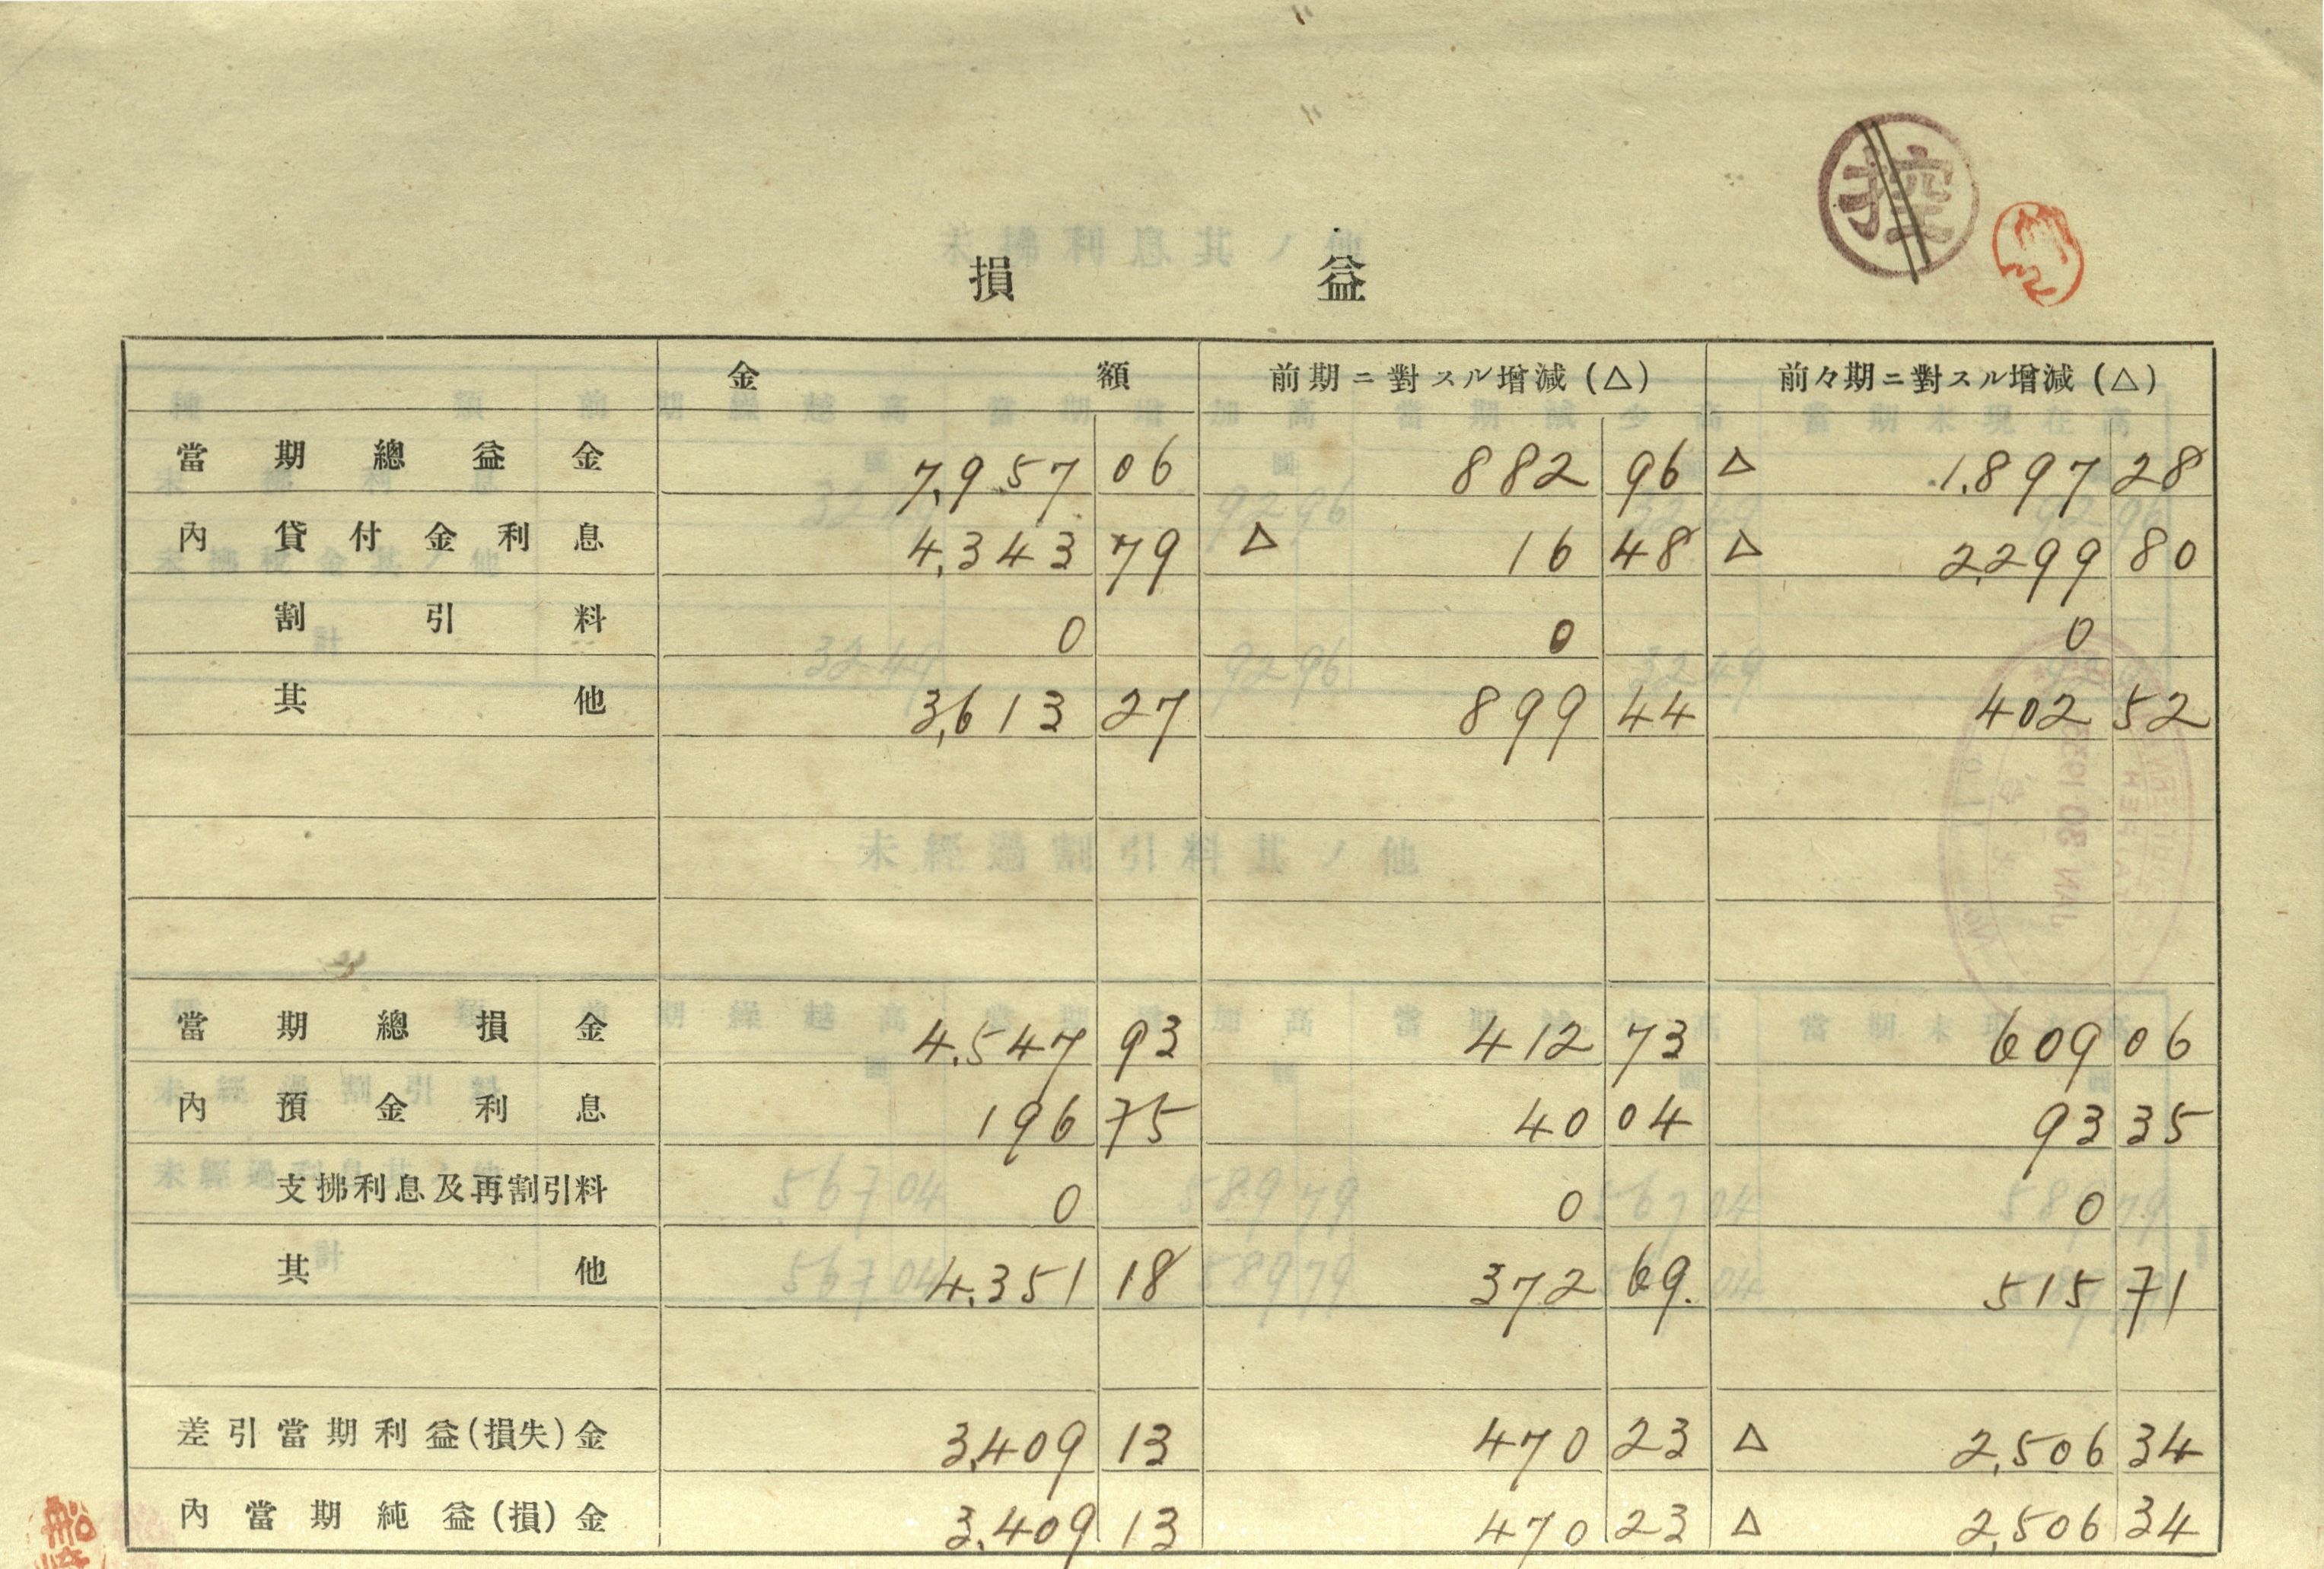 控
損益
金額 前期ニ對スル增減(△) 前々期ニ對スル增減(△)
當期總益金 7,957 06 882 96 △ 1,897 28
內貸付金利息 4,343 79 △ 16 48 △ 2,299 80
割引料 0 0 0
其他 3,613 27 899 44 402 52
當期總損金 4,547 93 412 73 609 06
內預金利息 196 75 40 04 93 35
支拂利息及再割引料 0 0 0
其他 4,351 18 372 69. 515 71
差引當期利益(損失)金 3,409 13 470 23 △ 2,506 34
內當期純益(損)金 3,409 13 470 23 △ 2,506 34